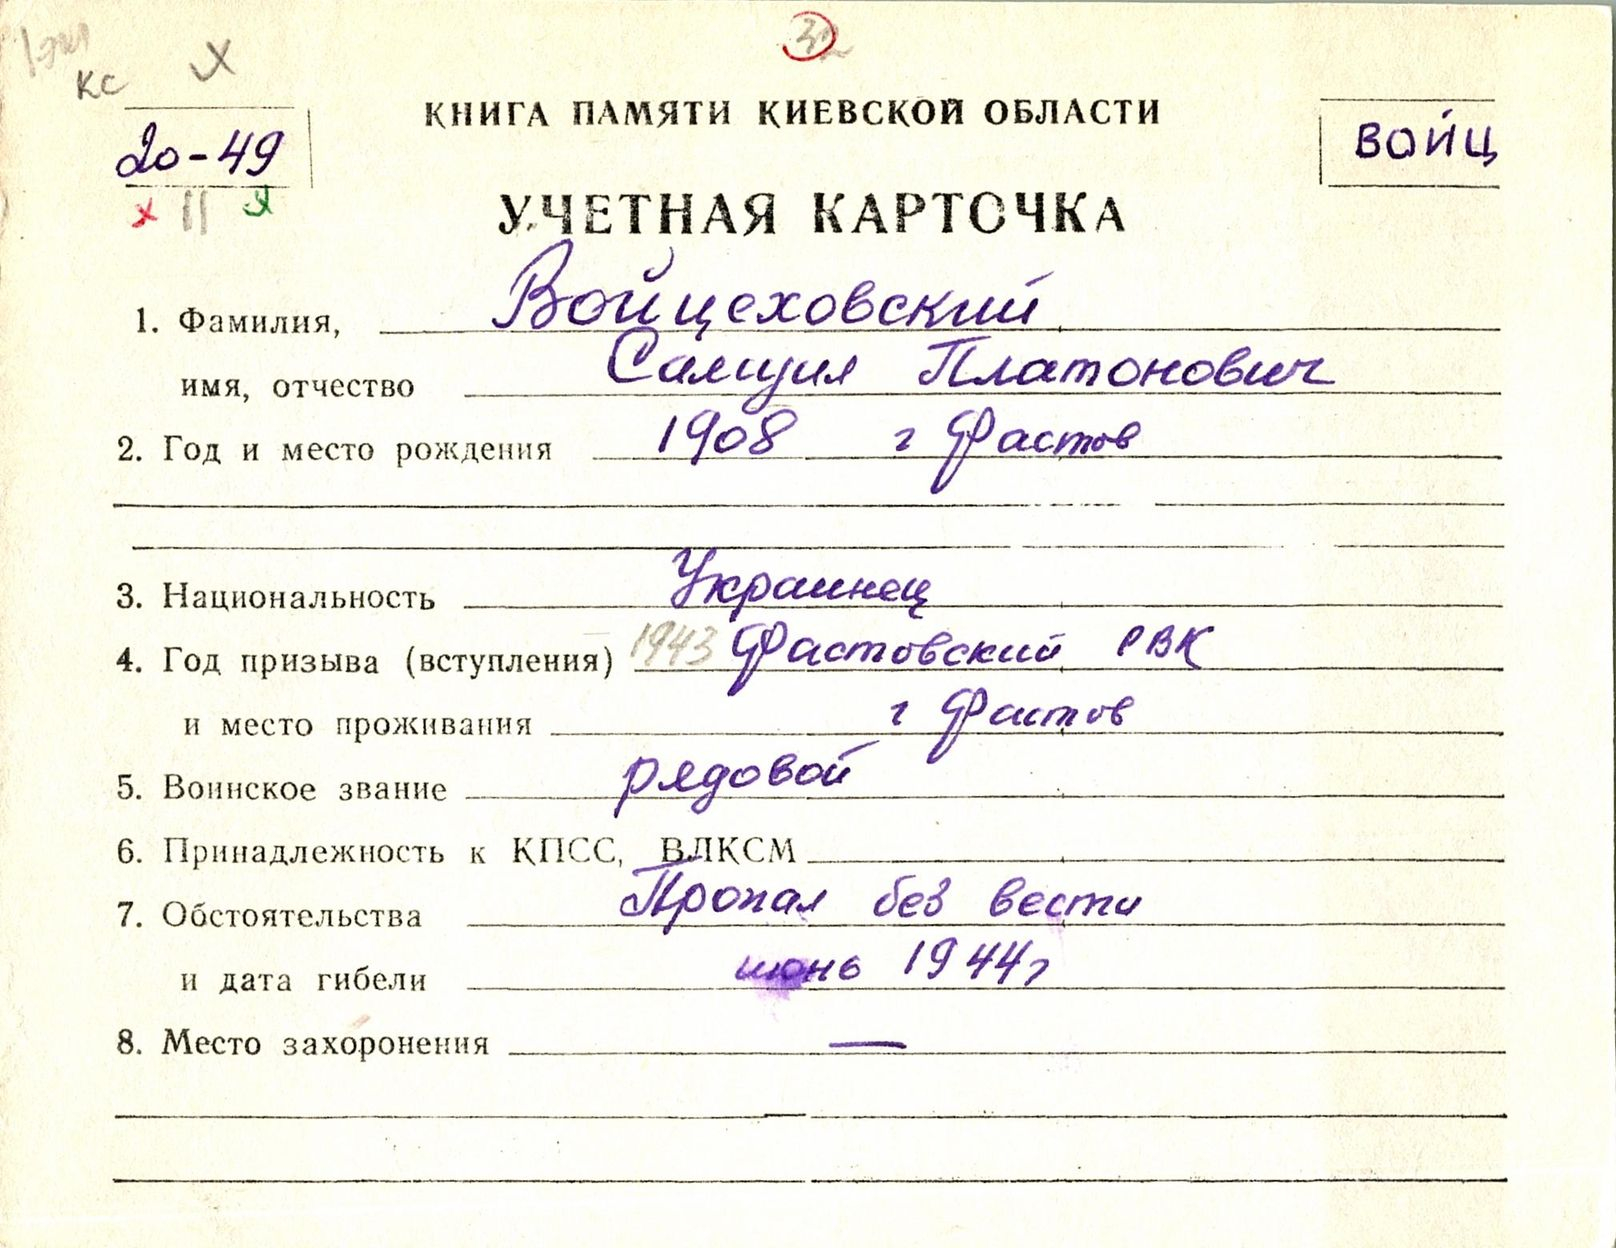 КС
КНИГА ПАМЯТИ КИЕВСКОЙ ОБЛАСТИ
20-49
ВОЙЦ
УЧЕТНАЯ КАРТОЧКА
1. Фамилия, Войцеховский
имя, отчество Самуил Платонович
2. Год и место рождения 1908 г Фастов
3. Национальность Украинец
4. Год призыва (вступления) 1943 Фастовский РВК
и место проживания г Фастов
5. Воинское звание рядовой
6. Принадлежность к КПСС, ВЛКСМ
7. Обстоятельства Пропал без вести
и дата гибели июнь 1944г
8. Место захоронения —